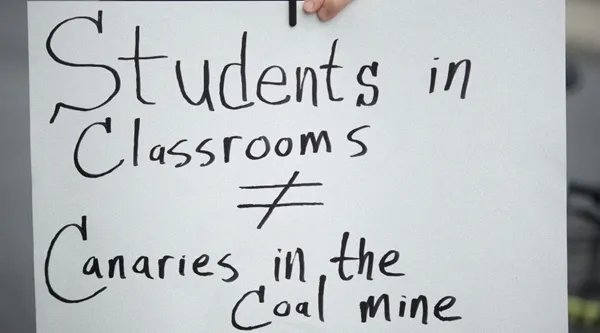 Students in
Classrooms
≠
Canaries in the
Coal mine